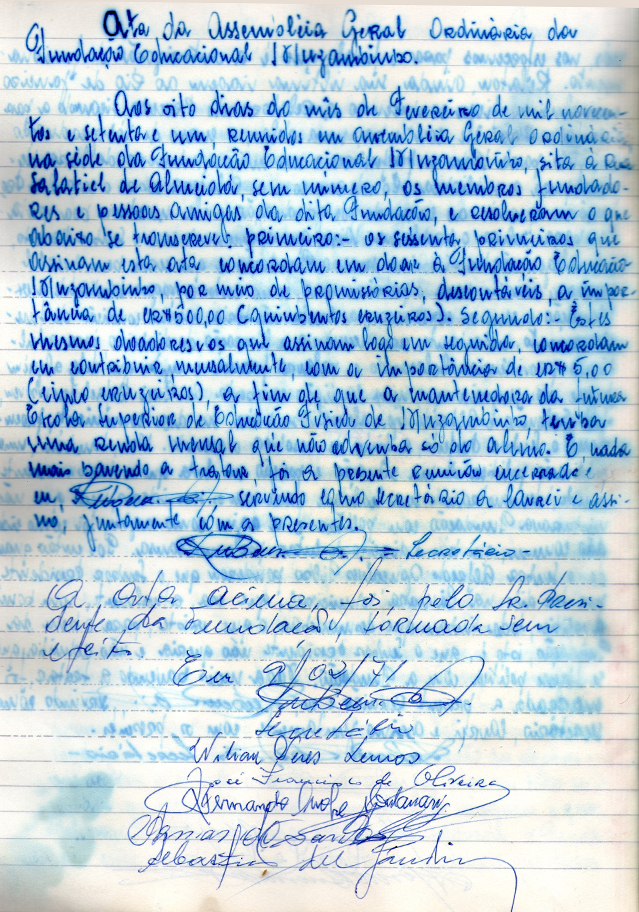 Ata da Assembléia Geral Ordinária da
Fundação Educacional Muzambinho.
Aos oito dias do mês de Fevereiro de mil novecen-
tos e setenta e um, reunidos em assembléia Geral ordinária
na séde da Fundação Educacional Muzambinho, sita à Rua
Salatiel de Almeida, sem número, os membros fundado-
res e pessoas amigas da dita Fundação, e resolveram o que
abaixo se transcreve, primeiro:- os sessenta primeiros que
assinam esta ata concordam em doar à Fundação Educação
Muzambinho, por meio de promissórias, descontáveis, a impor-
tância de cr$500,00 (quinhentos cruzeiros). Segundo:- Estes
mesmos doadores os que assinam logo em seguida, concordam
em contribuir mensalmente, com a importância de cr$ 5,00
(cinco cruzeiros), a fim de que a mantenedora da futura
Escola Superior de Educação Física de Muzambinho, tenha
uma renda mensal que não advenha só do aluno. E nada
mais havendo a tratar, foi a presente reunião encerrada e
eu, servindo como secretário a lavrei e assi-
no, juntamente com os presentes.
Secretário-
A ata acima, foi pelo Sr. Presi-
dente da Fundação, tornada sem
efeito
Em 9/02/71
Secretário
Wilian Peres Lemos
José Francisco de Oliveira
Armando
Sebastião Del Gaudio